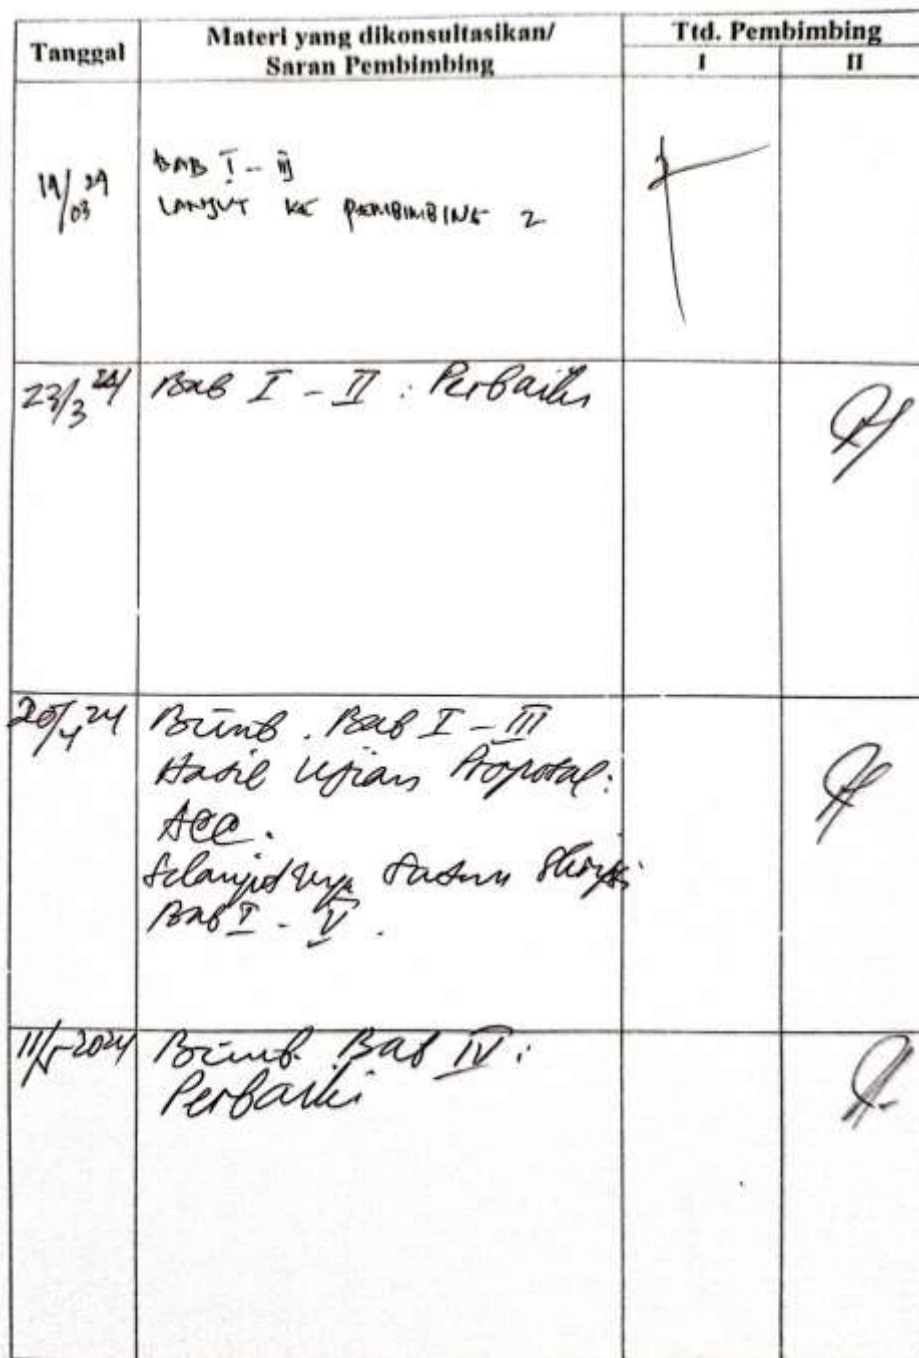 Tanggal
Materi yang dikonsultasikan/
Saran Pembimbing
Ttd. Pembimbing
I
II
BAB I - III
LANJUT KE PEMBIMBING 2
23/3 24
Bab I - II : Perbaiki
24
Bimb. Bab I - III
Hasil Ujian Proposal:
ACC.
Selanjutnya susun Skripsi
Bab I - V.
11/5-2024
Bimb. Bab IV:
Perbaiki